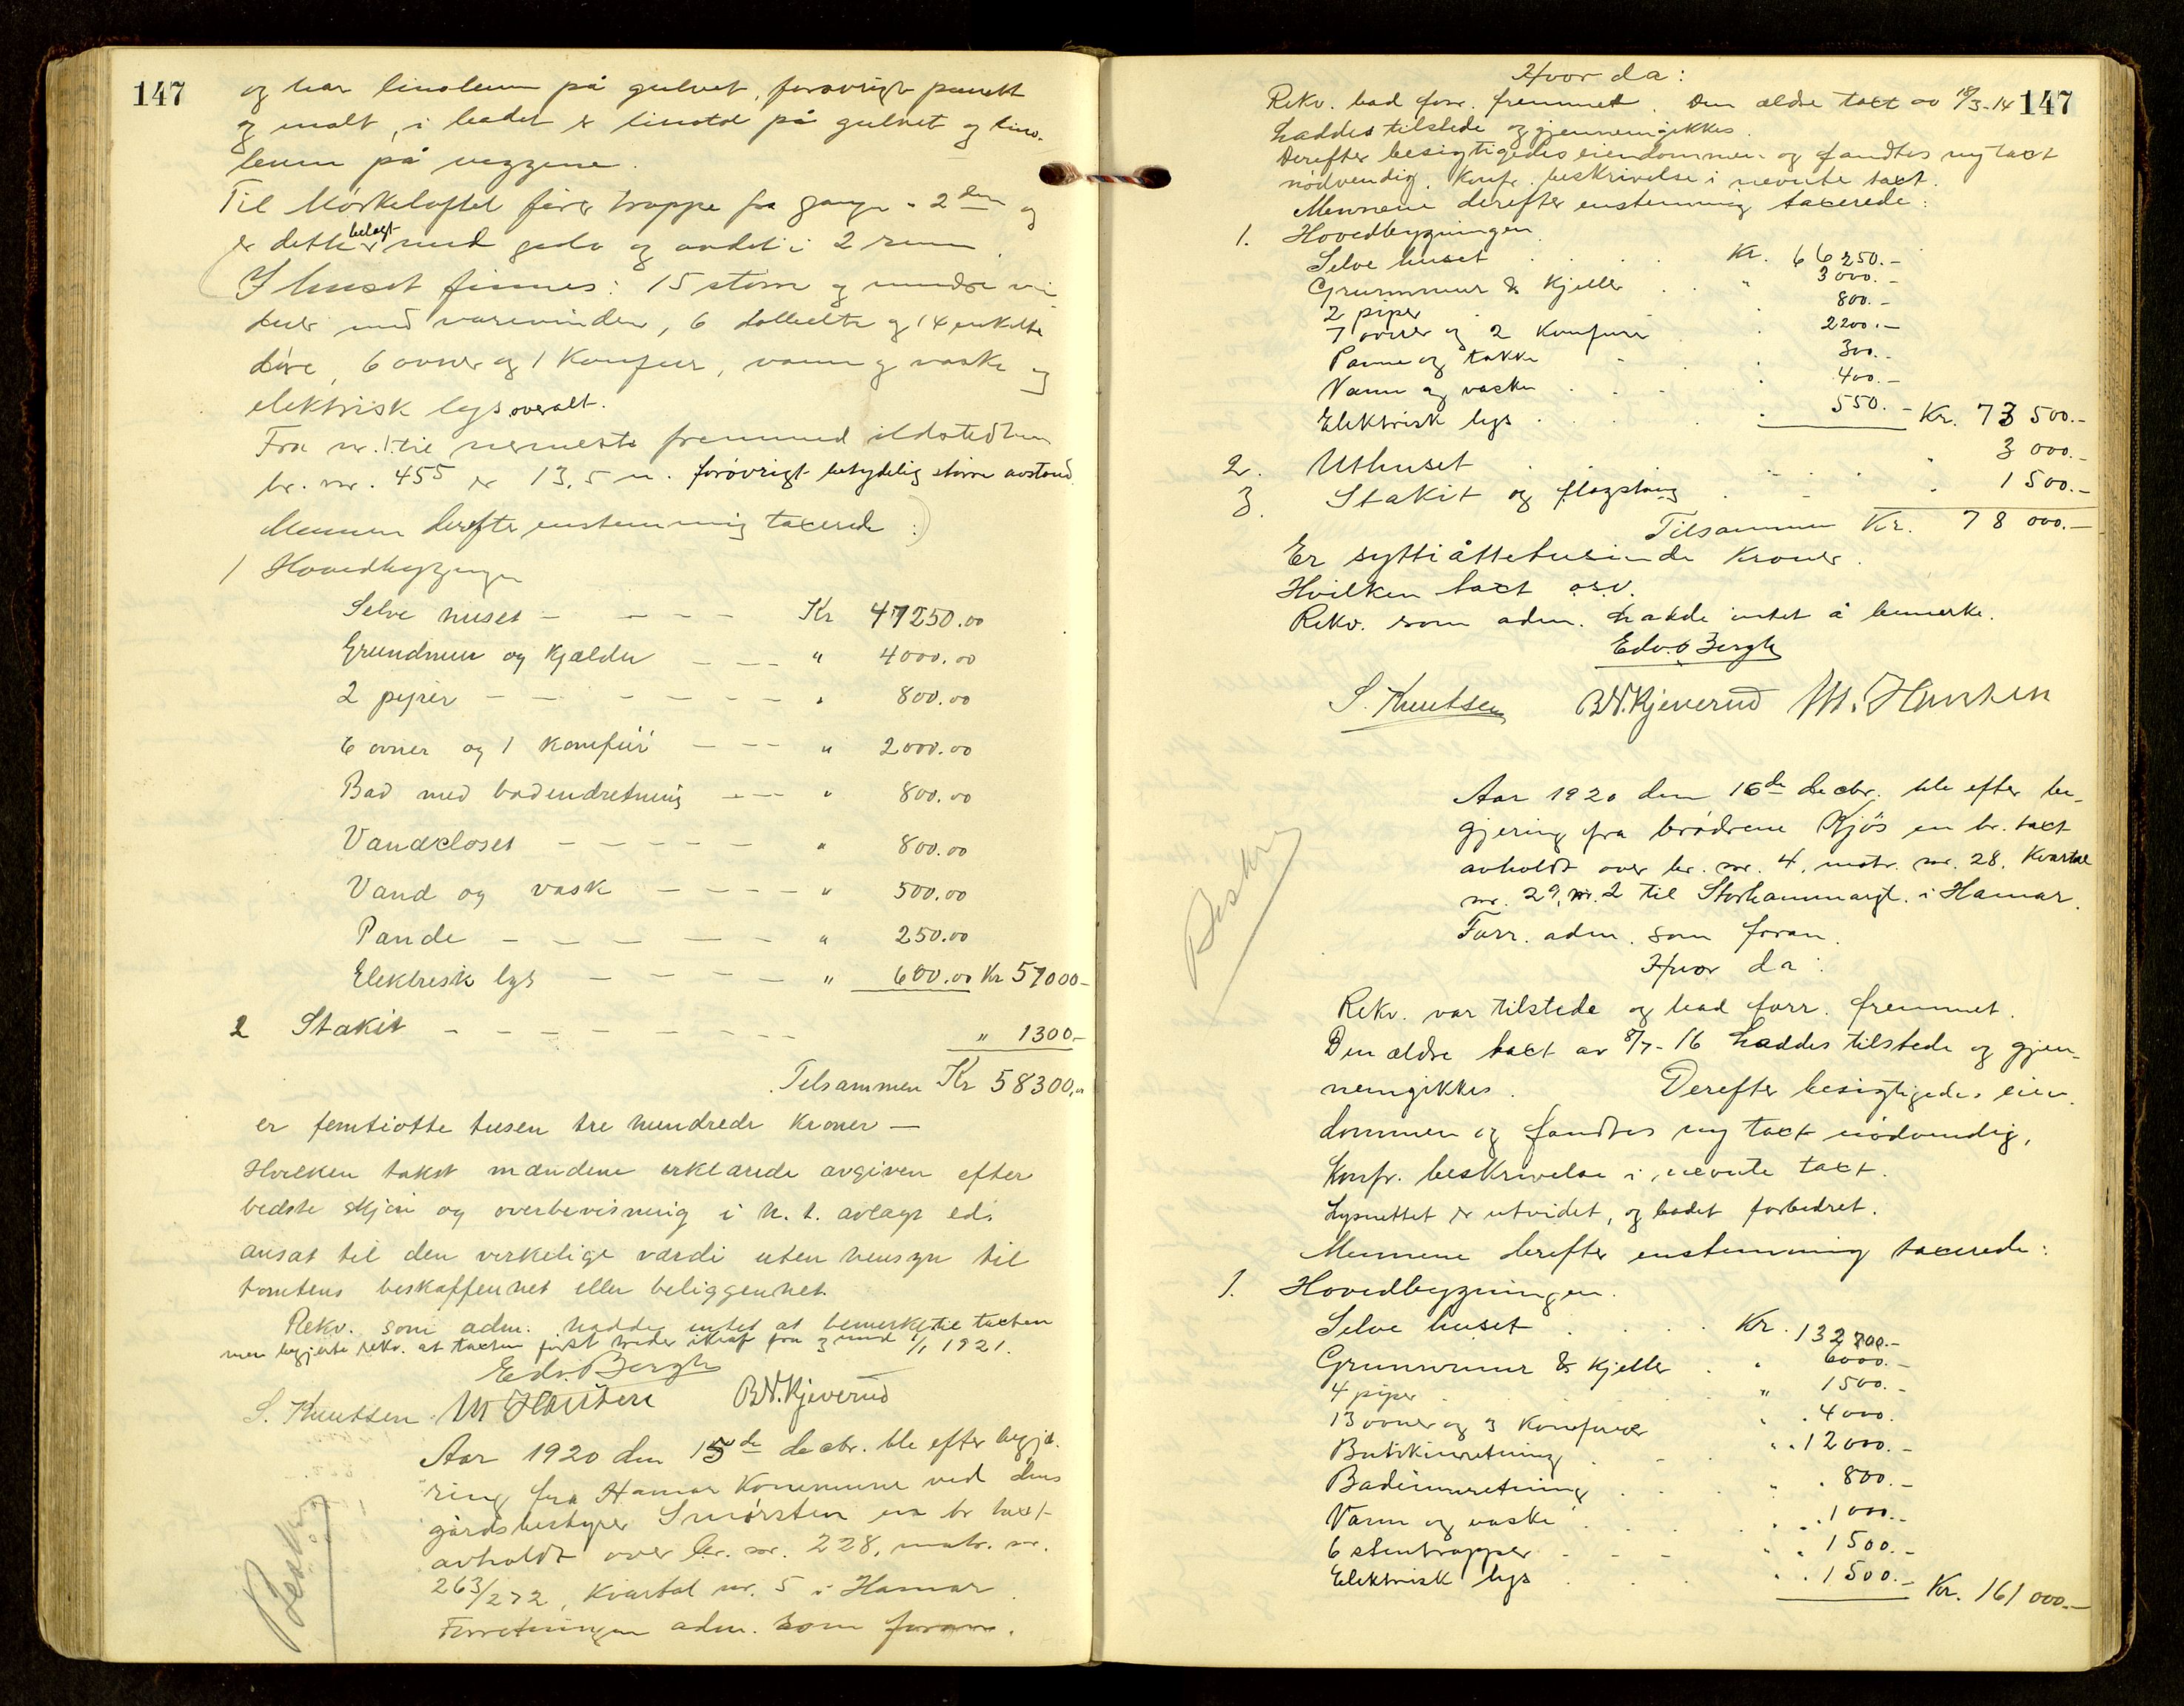 147
og har linoleum på gulvet, forøvrigt panelt
og malt, i badet er linotol på gulvet og lino-
leum på veggene.
Til Mørkeloftet fører trappe fra gangen i 2den og
er dette belagt med gulv og avdelt i 2 rum.
I huset finnes: 15 større og mindre vin
duer med varevinduer, 6 dobbelte og 14 enkelte
døre, 6 ovner og 1 Komfur, vann og vaske og
elektrisk lys overalt.
Fra nr. 1 til nermeste fremmed ildsted hus
br. nr. 455 er 13,5 m. forøvrigt betydelig større avstand.
Mennene derefter enstemmig taxerede:
1 Hovedbygningen
Selve huset - - - - - Kr 47250.00
Grundmur og Kjælder - - - " 4000.00
2 piper - - - - - - - " 800.00
6 ovner og 1 Komfür - - - " 2000.00
Bad med badeindretning - - - " 800.00
Vandcloset - - - - - - " 800.00
Vand og vask - - - - - " 500.00
Pande - - - - - - " 250.00
Elektrisk lys - - - - - " 600.00 Kr 57000-
2 Stakit - - - - - - - - " 1300-
Tilsammen Kr 58300,00
er femtiotte tusen tre hundrede Kroner -
Hvilken takst mændene erklærede avgiven efter
bedste skjøn og overbevisning i h. t. avlagt ed.
ansat til den virkelige værdi uten hensyn til
tomtens beskaffenhet eller beliggenhet.
Rekv. som adm. hadde intet at bemerke til taxten
men begjærte rekv. at taxten først treder ikraf fra og med 1/1 1921.
Edv. Bergh
S. Knutsen M Hansen B.N. Kjeverud
Aar 1920 den 15de decbr. ble efter begjæ-
ring fra Hamar Kommune ved dens
gårdsbestyrer Smørsten en br. taxt
avholdt over br. nr. 228, matr. nr.
263/272, Kvartal nr. 5 i Hamar.
Forretningen adm. som foran.
Beskr
147
Hvor da:
Rekv. bad forr. fremmet. Den ældre taxt av 18/3-14
haddes tilstede og gjennemgikkes.
Derefter besigtigedes eiendommen og fandtes ny taxt
nødvendig. Konfr. beskrivelse i nevnte taxt.
Mennene derefter enstemmig taxerede:
1. Hovedbygningen
Selve huset . . . . Kr. 66250.-
Grunnmur & Kjeller . . " 3000.-
2 piper . 800.-
7 ovner og 2 Komfurer . . 2200.-
Panne og takke . . 300.-
Vann og vaske . . . . 400.-
Elektrisk lys . . . . . 550.- Kr. 73500.-
2. Uthuset . . . . . " 3000.-
3. Stakit og flagstang . . . 1500.-
Tilsammen Kr. 78000.-
Er syttiåttetusinde Kroner.
Hvilken taxt osv.
Rekv. som adm. hadde intet å bemerke.
Edv. Bergh
S. Knutsen B.N. Kjeverud M. Hansen
Beskr
Aar 1920 den 16de decbr. ble efter be-
gjering fra brødrene Kjøs en br. taxt
avholdt over br. nr. 4, matr. nr. 28, Kvartal
nr. 29, nr. 2 til Storhammargt. i Hamar.
Forr. adm. som foran.
Hvor da:
Rekv. var tilstede og bad forr. fremmet.
Den ældre taxt av 8/7-16 haddes tilstede og gjen-
nemgikkes. Derefter besigtigedes eien-
dommen og fandtes ny taxt nødvendig,
Konfr. beskrivelse i nevnte taxt.
Lysnettet er utvidet, og badet forbedret.
Mennene derefter enstemmig taxerede:
1. Hovedbygningen.
Selve huset . . . . Kr. 132700.-
Grunnmur & Kjeller . " 6000.-
4 piper . . " 1500.-
13 ovner og 3 Komfurer . . 4000.
Butikinretning . . . . 12000.-
Badeinnretning . . . " . 800.-
Vann og vaske . . . . . 1000.-
6 stentrapper . . . " . 1500.-
Elektrisk lys . . . " . 1500.- Kr. 161000.-